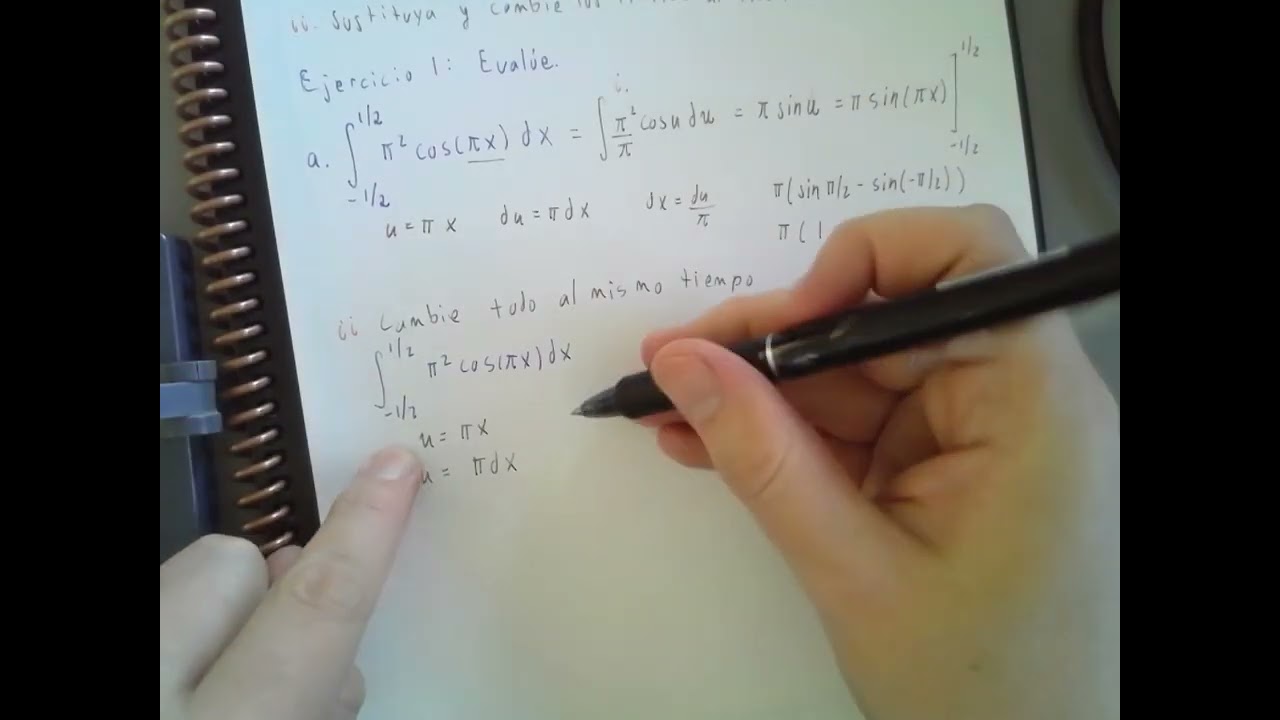 ii. Sustituya y cambie los
Ejercicio 1: Evalúe.
i.
a. ∫_{-1/2}^{1/2} π² cos(πx) dx = ∫ π²/π cosu du = π sinu = π sin(πx) ]_{-1/2}^{1/2}
u = π x du = π dx dx = du/π π(sin π/2 - sin(-π/2))
π ( 1
ii Cambie todo al mismo tiempo
∫_{-1/2}^{1/2} π² cos(πx) dx
u = πx
u = πdx